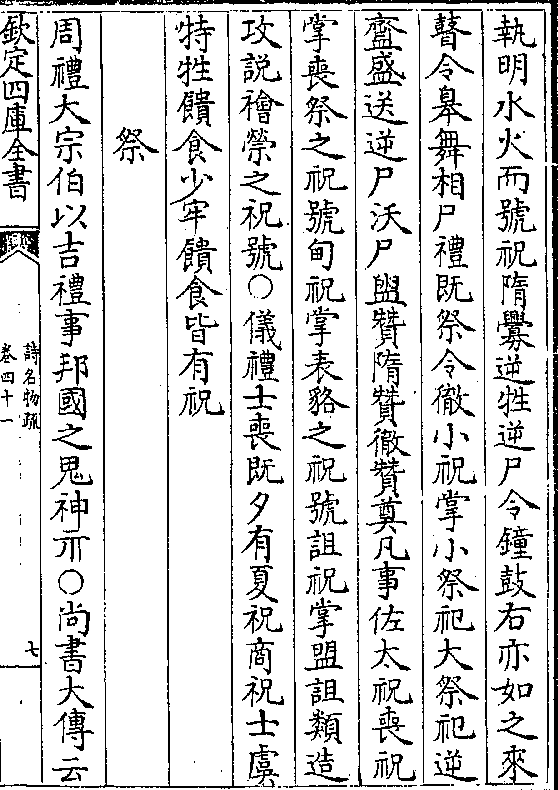 執明水火而號祝隋釁逆牲逆尸令鐘鼓右亦如之來
瞽令臯舞相尸禮既祭令徹小祝掌小祭祀大祭祀逆
齍盛送逆尸沃尸盥贊隋贊徹贊奠凡事佐太祝喪祝
掌喪祭之祝號甸祝掌表貉之祝號詛祝掌盟詛類造
攻説禬禜之祝號○儀禮士喪既夕有夏祝商祝士虞
特牲饋食少牢饋食皆有祝
祭
周禮大宗伯以吉禮事邦國之鬼神示○尚書大傳云
欽定四庫全書
詩名物疏
卷四十一
七